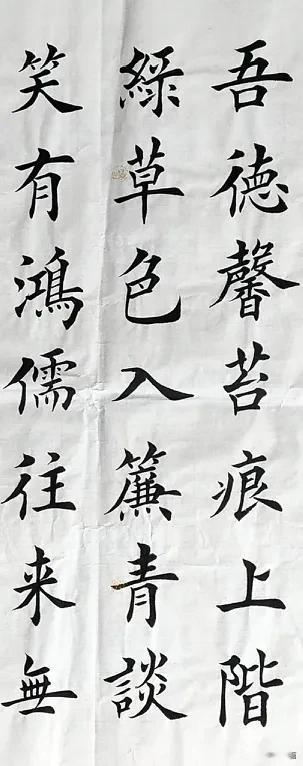 吾德馨苔痕上階
綠草色入簾青談
笑有鴻儒往来無